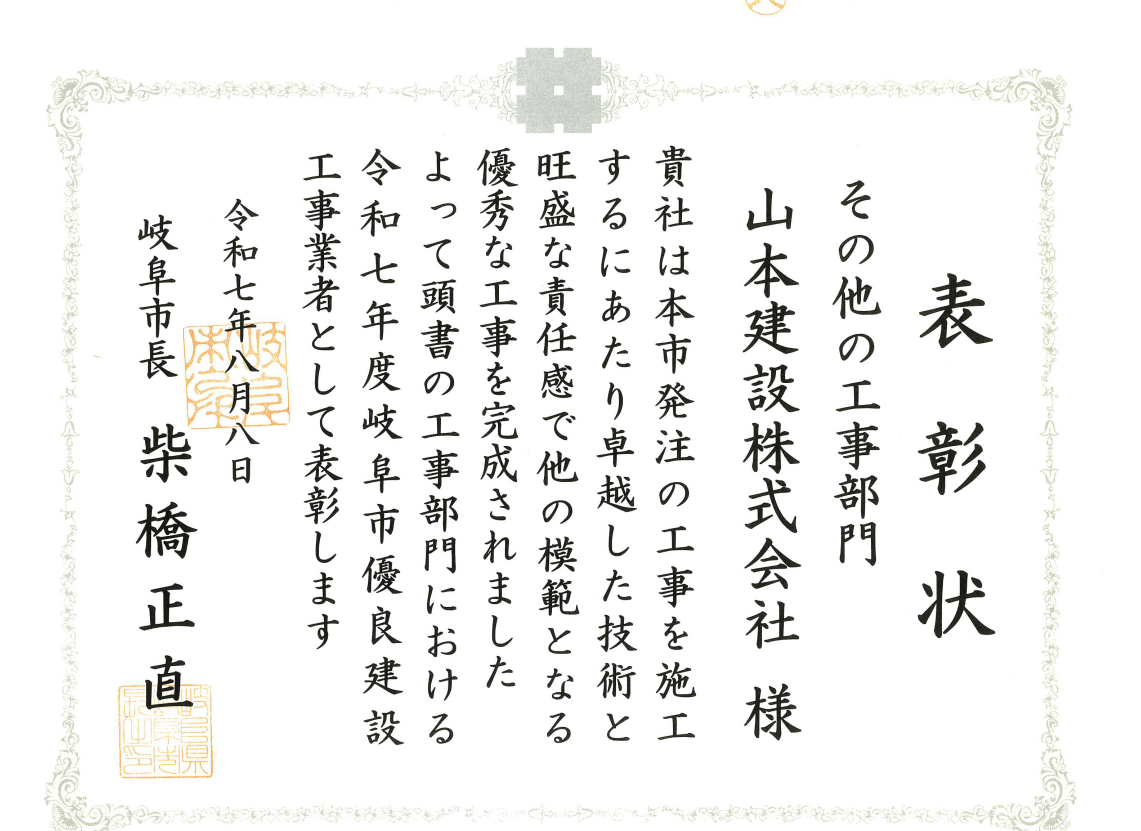 表彰状
その他の工事部門
山本建設株式会社 様
貴社は本市発注の工事を施工
するにあたり卓越した技術と
旺盛な責任感で他の模範となる
優秀な工事を完成されました
よって頭書の工事部門における
令和七年度岐阜市優良建設
工事業者として表彰します
令和七年八月八日
岐阜市長 柴橋正直